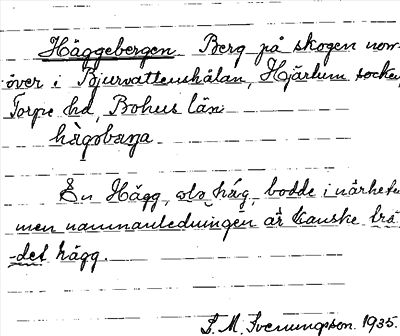 Häggebergen Berg på skogen nom-
över i Bjurvattenshålan, Hjärtum socken,
Torpe hd, Bohus län
En Hägg, hág, bodde i närheten
men namnanledningen är kanske trä-
-det hägg.
S. M. Svenungsson 1935.